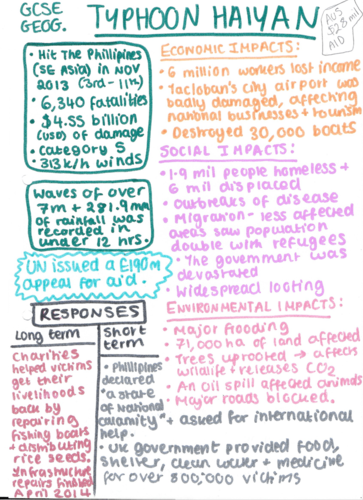 GCSE
GEOG.
TYPHOON HAIYAN
AUS
$28 mil
AID
• Hit The Phillipines
(SE Asia) in NOV
2013 (3rd - 11th)
• 6,340 fatalities
• $4.55 billion
(USD) of damage
• category 5
• 313k/h winds
Waves of over
7m + 281.9mm
of rainfall was
recorded in
under 12 hrs.
UN issued a £190m
appeal for aid.
ECONOMIC IMPACTS:
• 6 million workers lost income
• Tacloban's city airport was
badly damaged, affecting
national businesses + tourism
• Destroyed 30,000 boats
SOCIAL IMPACTS:
• 1.9 mil people homeless +
6 mil displaced
• Outbreaks of disease
• Migration - less affected
areas saw population
double with refugees
• The government was
devastated
• Widespread looting
ENVIRONMENTAL IMPACTS:
• Major flooding
• 71,000 ha of land affected
• Trees uprooted → affects
wildlife + releases CO2
• An oil spill affected animals
• Major roads blocked.
RESPONSES
Long term
Charities
helped victims
get their
livelihoods
back by
repairing
fishing boats
+ distributing
rice seeds.
Infrastructure
repairs finished
April 2014
Short
term
• Phillipines
declared
"a state
of National
calamity" + asked for international
help.
• UK government provided food,
shelter, clean water + medicine
for over 800,000 victims